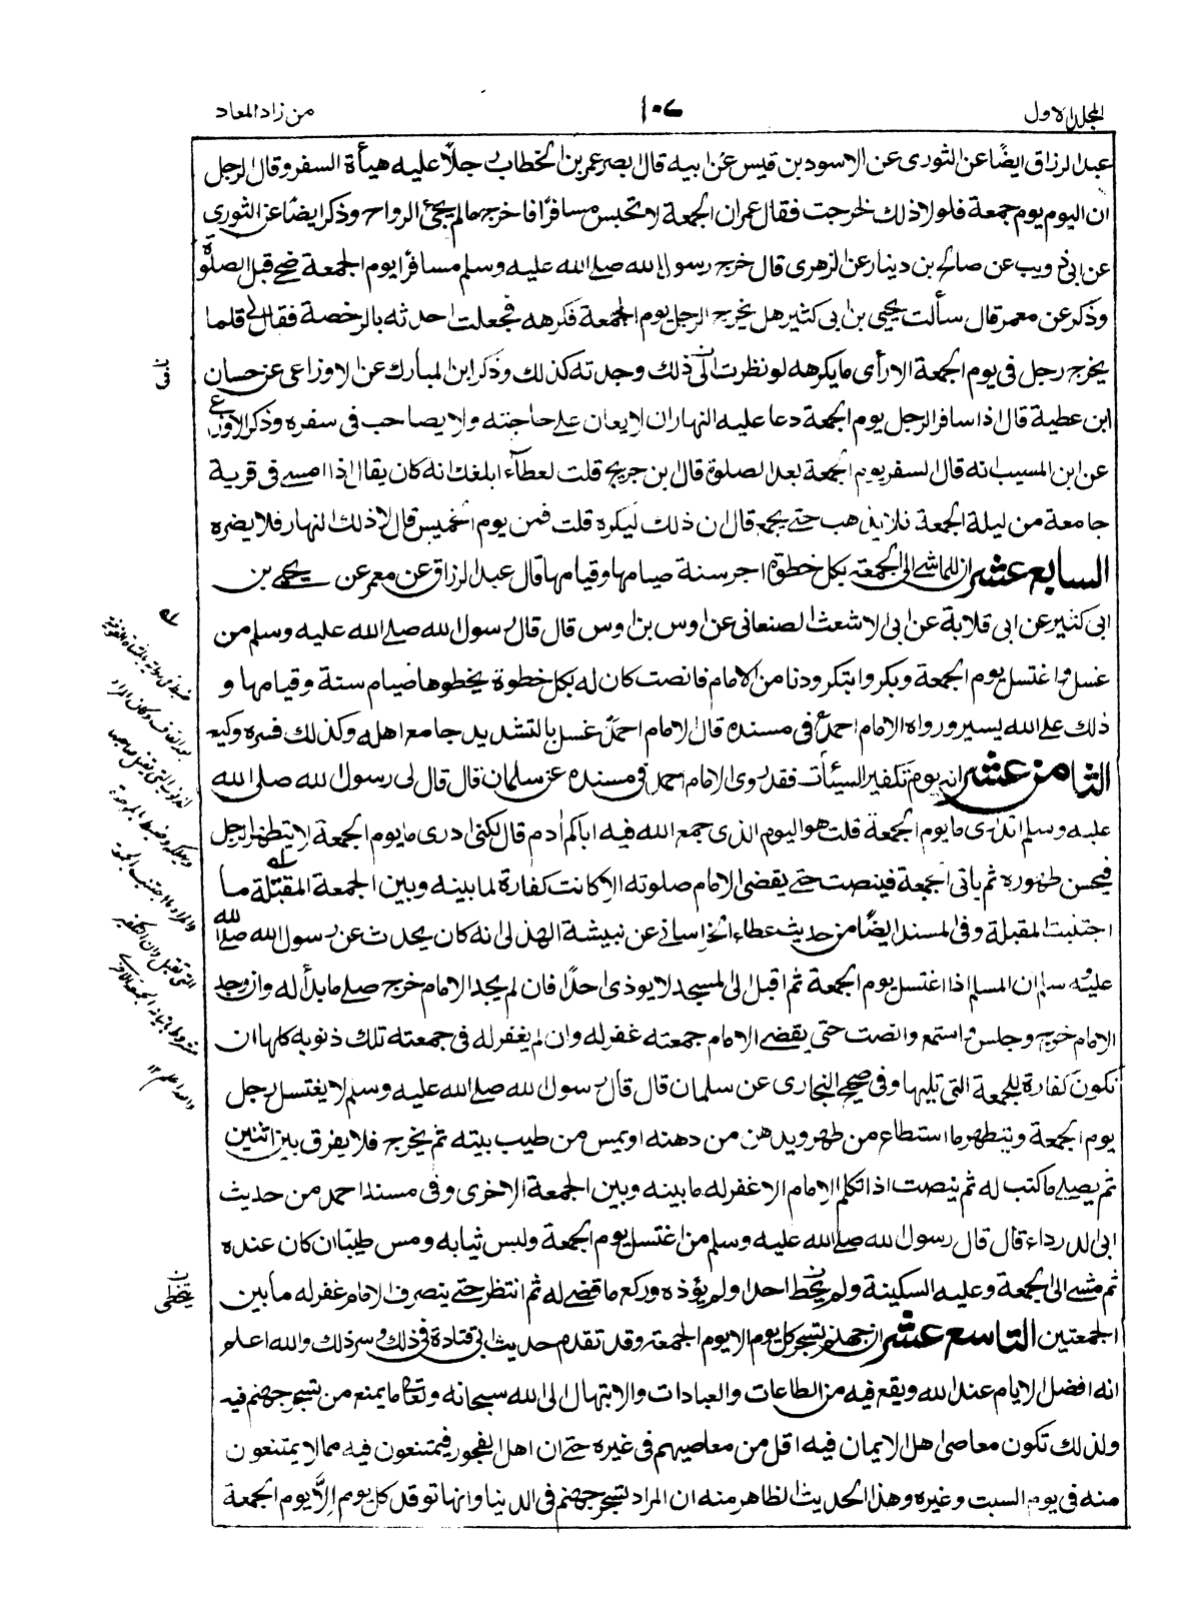 المجلد الاول
١٠٧
من زاد المعاد
عبد الرزاق ايضًا عن الثورى عن الاسود بن قيس عن ابيه قال بصر عمر بن الخطاب رجلًا عليه هيأة السفر وقال الرجل
ان اليوم يوم جمعة فلولا ذلك لخرجت فقال عمران الجمعة لا تحبس مسافرًا فاخرج مالم يجئ الرواح وذكر ايضًا عن الثورى
عن ابى ذويب عن صالح بن دينار عن الزهرى قال خرج رسول الله صلے الله عليه وسلم مسافرًا يوم الجمعة ضحے قبل الصلوٰة
وذكر عن معمر قال سألت يحيى بن ابى كثير هل يخرج الرجل يوم الجمعة فكرهه فجعلت احدثه بالرخصة فقال لے قلما
يخرج رجل فى يوم الجمعة الا رأى ما يكرهه لو نظرت فى ذلك وجدته كذلك وذكر ابن المبارك عن الاوزاعى عن حسان
ابن عطية قال اذا سافر الرجل يوم الجمعة دعا عليه النهار ان لا يعان علے حاجته ولا يصاحب فى سفره وذكر الاوزاعى
عن ابن المسيب انه قال السفر يوم الجمعة بعد الصلوة قال ابن جريج قلت لعطاء ابلغك انه كان يقال اذا امسے فى قرية
جامعة من ليلة الجمعة فلا يذهب حتے يجمع قال ان ذلك ليكره قلت فمن يوم الخميس قال لا ذلك النهار فلا يضره
السابع عشر ان للماشے الى الجمعة بكل خطوة اجر سنة صيامها وقيامها قال عبد الرزاق عن معمر عن يحيے بن
ابى كثير عن ابى قلابة عن ابى الاشعث الصنعانى عن اوس بن اوس قال قال رسول الله صلے الله عليه وسلم من
غسل واغتسل يوم الجمعة وبكر وابتكر ودنا من الامام فانصت كان له بكل خطوة يخطوها صيام سنة وقيامها و
ذلك علے الله يسير ورواه الامام احمد فى مسنده قال الامام احمد غسل بالتشديد جامع اهله وكذلك فسره وكيع
الثامن عشر انه يوم تكفير السيئات فقد روى الامام احمد فى مسنده عن سلمان قال قال لى رسول الله صلے الله
عليه وسلم اتدرى ما يوم الجمعة قلت هو اليوم الذى جمع الله فيه اباكم ادم قال لكنى ادرى ما يوم الجمعة لا يتطهر الرجل
فيحسن طهوره ثم ياتى الجمعة فينصت حتے يقضى الامام صلوته الا كانت كفارة لما بينه وبين الجمعة المقبلة ما
اجتنبت المقبلة وفى المسند ايضًا من حديث عطاء الخراسانے عن نبيشة الهذلى انه كان يحدث عن رسول الله صلے الله
عليه وسلم ان المسلم اذا اغتسل يوم الجمعة ثم اقبل الى المسجد لا يوذى احدًا فان لم يجد الامام خرج صلے ما بدأ له وان وجد
الامام خرج وجلس واستمع وانصت حتى يقضے الامام جمعته غفر له وان لم يغفر له فى جمعته تلك ذنوبه كلها ان
تكون كفارة للجمعة التى تليها وفى صحيح البخارى عن سلمان قال قال رسول الله صلے الله عليه وسلم لا يغتسل رجل
يوم الجمعة ويتطهر ما استطاع من طهر ويدهن من دهنه او يمس من طيب بيته ثم يخرج فلا يفرق بين اثنين
ثم يصلے ما كتب له ثم ينصت اذا تكلم الامام الا غفر له ما بينه وبين الجمعة الاخرى وفى مسند احمد من حديث
ابى الدرداء قال قال رسول الله صلے الله عليه وسلم من اغتسل يوم الجمعة ولبس ثيابه ومس طيبًا ان كان عنده
ثم مشے الى الجمعة وعليه السكينة ولم يتخط احدا ولم يؤذه وركع ما قضے له ثم انتظر حتے ينصرف الامام غفر له ما بين
الجمعتين التاسع عشر ان جهنم تسجر كل يوم الا يوم الجمعة وقد تقدم حديث ابى قتادة فى ذلك وسر ذلك والله اعلم
انه افضل الايام عند الله ويقع فيه من الطاعات والعبادات والابتهال الى الله سبحانه وتعالى ما يمنع من تسجر جهنم فيه
ولذلك تكون معاصى اهل الايمان فيه اقل من معاصيهم فى غيره حتے ان اهل الفجور فيمتنعون فيه مما لا يمتنعون
منه فى يوم السبت وغيره وهذا الحديث الظاهر منه ان المراد تسجر جهنم فى الدنيا وانها توقد كل يوم الا يوم الجمعة